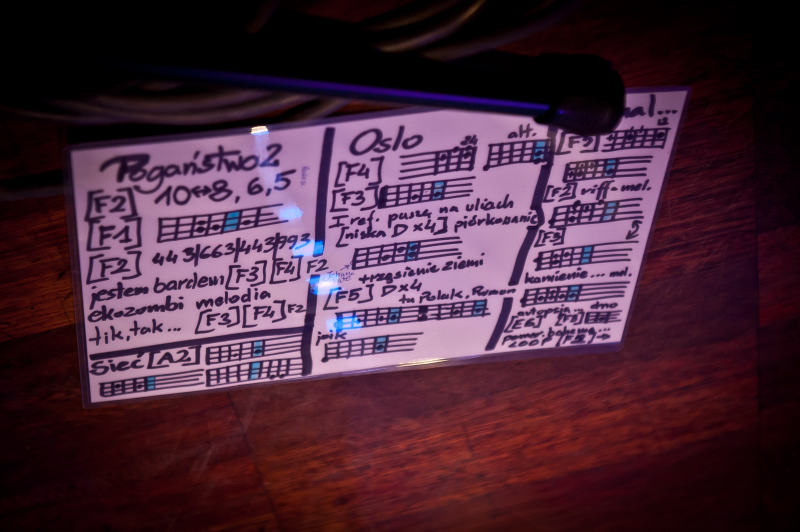 Pogaństwo2
10↔8, 6,5
[F2]
[F1]
[F2] 443/663/443/993
jestem bardem [F3] [F4] F2
ekozombi melodia
tik, tak... [F3] [F4] F2
Sieć [A2]
Oslo
alt.
24
[F4]
[F3]
I ref. puszą na uliach
[niska D x4] piórkowanie
trzęsienie ziemi
[F5] D x4]
tu Polak, Rumun
jpik
al...
12
[F2]
[F2] riff mel.
[F3]
kamienie... mel.
autopsja... dno
[E6] [F2]